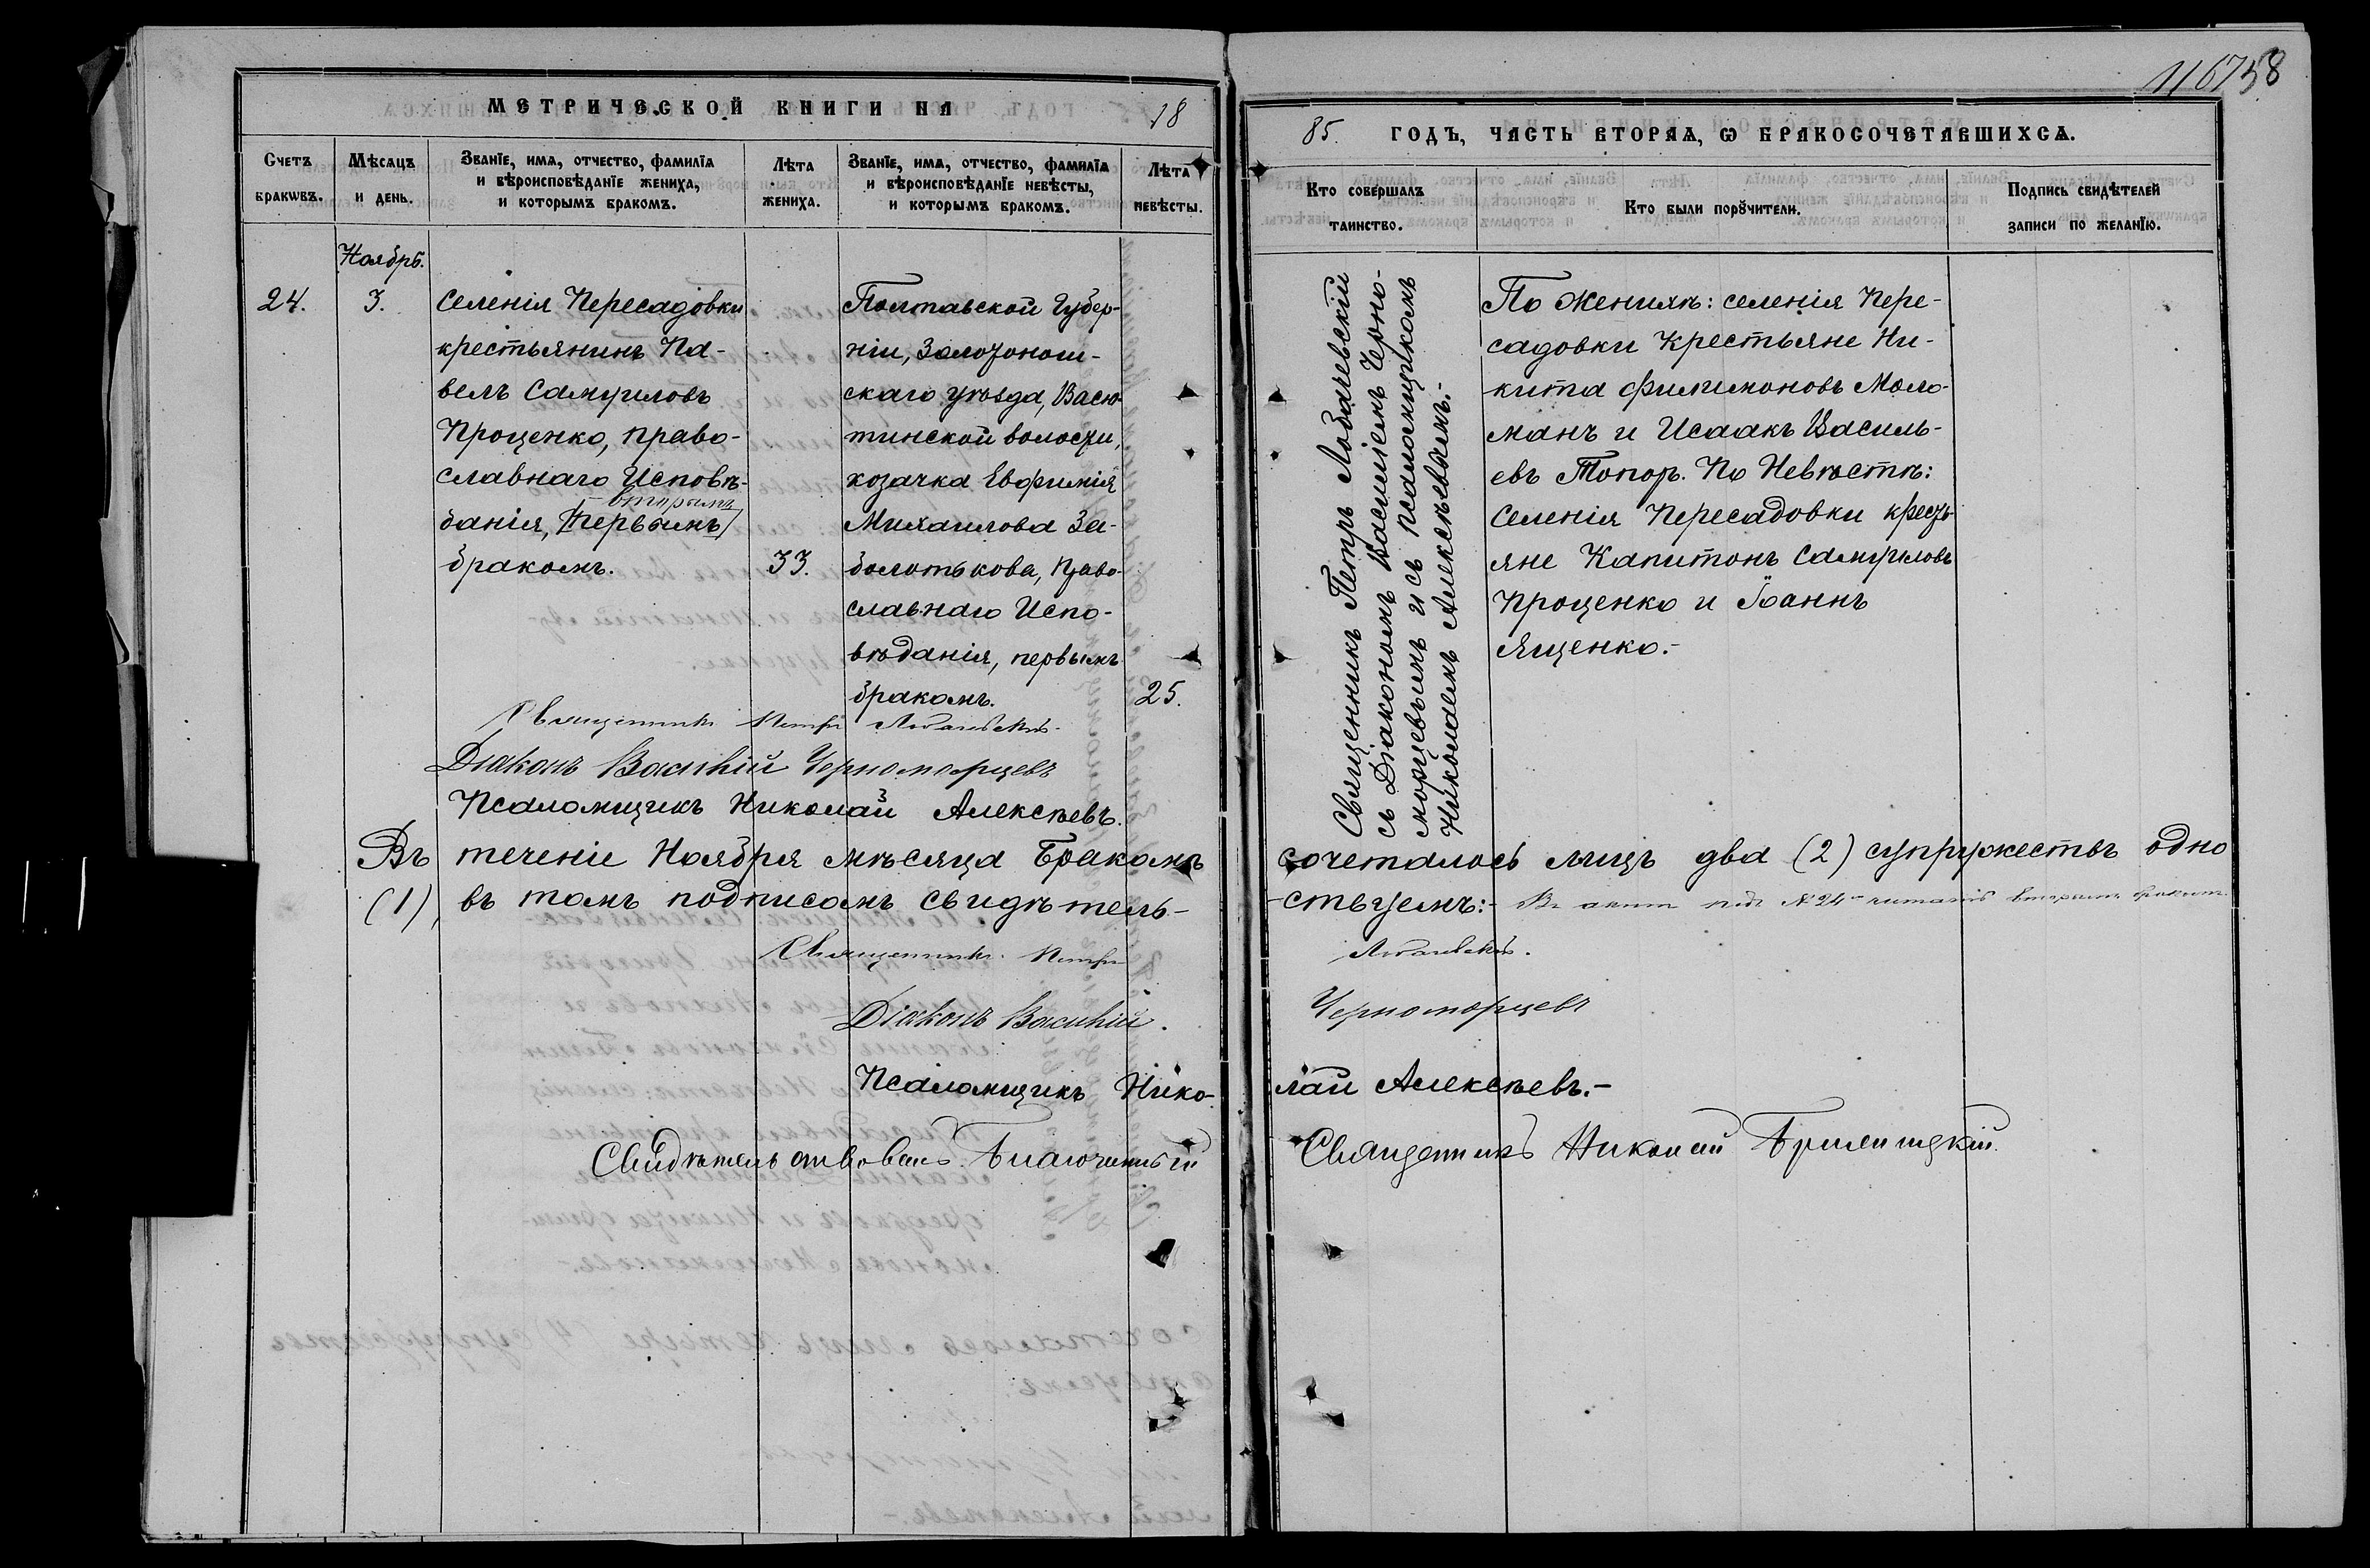 116758
МЕТРИЧЕСКОЙ КНИГИ НА 18
85. ГОДЪ, ЧАСТЬ ВТОРАЯ, Ѡ БРАКОСОЧЕТАВШИХСѦ.
Счетъ бракѡвъ.
Мѣсѧцъ и день.
Званїе, имѧ, отчество, фамилїѧ и вѣроисповѣданїе жениха, и которымъ бракомъ.
Лѣта жениха.
Званїе, имѧ, отчество, фамилїѧ и вѣроисповѣданїе невѣсты, и которымъ бракомъ.
Лѣта невѣсты.
Кто совершалъ таинство.
Кто были порꙋчители.
Подпись свидѣтелей записи по желанїю.
Ноябрь.
24.
3.
Селенія Пересадовки
крестьянинъ Па-
велъ Самуиловъ
Проценко, право-
славнаго Исповѣ-
вторымъ
данія, [первымъ]
бракомъ.
33.
Полтавской Губер-
ніи, Золотонош-
скаго уѣзда, Васю-
тинской волости,
козачка Евфимія
Михаилова За-
болотькова, Право-
славнаго Испо-
вѣданія, первымъ
бракомъ.
25.
Священникъ Петръ Лобачевскій
съ Діакономъ Василіемъ Черно-
морцевымъ и съ псаломщикомъ
Николаемъ Алексѣевымъ.-
По Женихѣ: селенія Пере-
садовки крестьяне Ни-
кита Филимоновъ Моло-
манъ и Исаакъ Василь-
евъ Топор. По Невѣстѣ:
Селенія Пересадовки кресть-
яне Капитонъ Самуиловъ
Проценко и Іоаннъ
Ященко.-
Священникъ Петръ Лобачевскій.
Діаконъ Василій Черноморцевъ
Псаломщикъ Николай Алексѣевъ.
Въ теченіе Ноября мѣсяца Бракомъ сочеталось лицъ два (2) супружествъ одно
(1), въ томъ подписомъ свидѣтель-ствуемъ:- Въ актѣ подъ № 24 читать вторымъ бракомъ.
Священникъ Петръ Лобачевскій.
Діаконъ Василій Черноморцевъ
Псаломщикъ Нико-лай Алексѣевъ.-
Свидѣтельствовалъ Благочинный Священникъ Николай